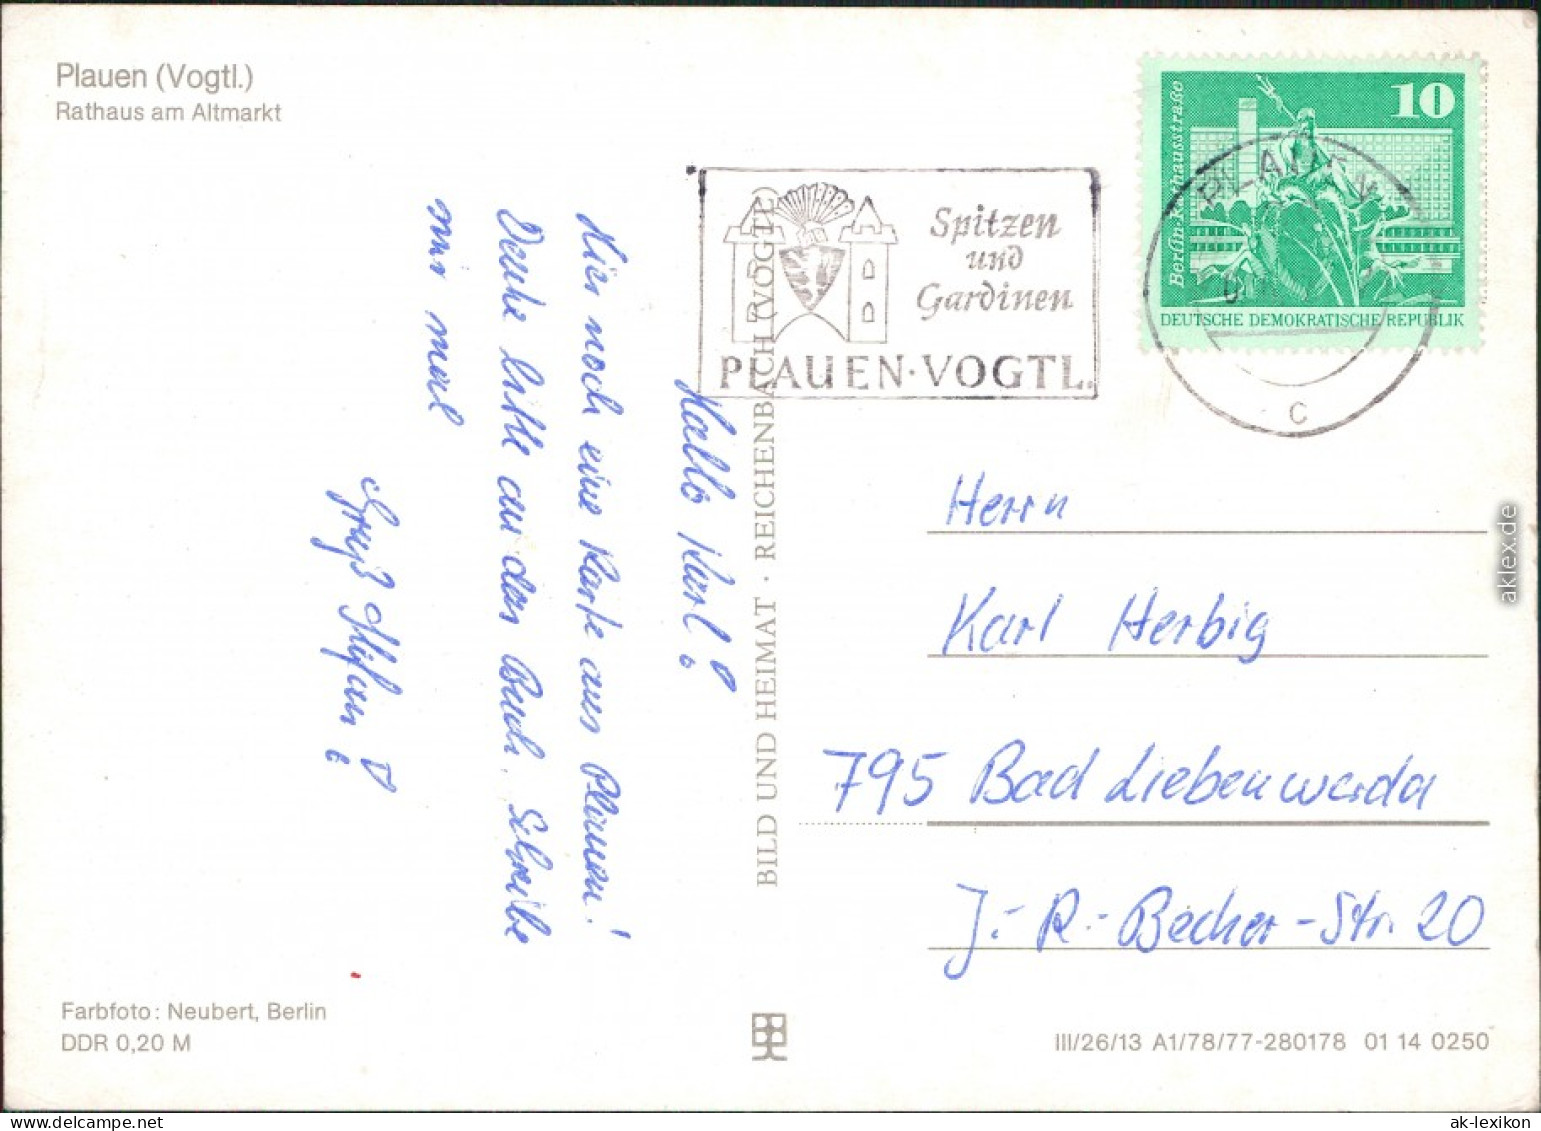 Plauen (Vogtl.)
Rathaus am Altmarkt
Spitzen
und
Gardinen
PLAUEN·VOGTL.
10
Berlin Rathausstraße
DEUTSCHE DEMOKRATISCHE REPUBLIK
PLAUEN
c
Hallo Karl!
Hier noch eine Karte aus Plauen!
bitte an das Buch. Schreibe
mir mal
Gruß Stefan!
BILD UND HEIMAT · REICHENBACH (VOGTL)
Herrn
Karl Herbig
795 Bad Liebenwerda
J.-R.-Becher-Str. 20
Farbfoto: Neubert, Berlin
DDR 0,20 M
III/26/13 A1/78/77-280178 01 14 0250
aklex.de
www.delcampe.net
ak-lexikon